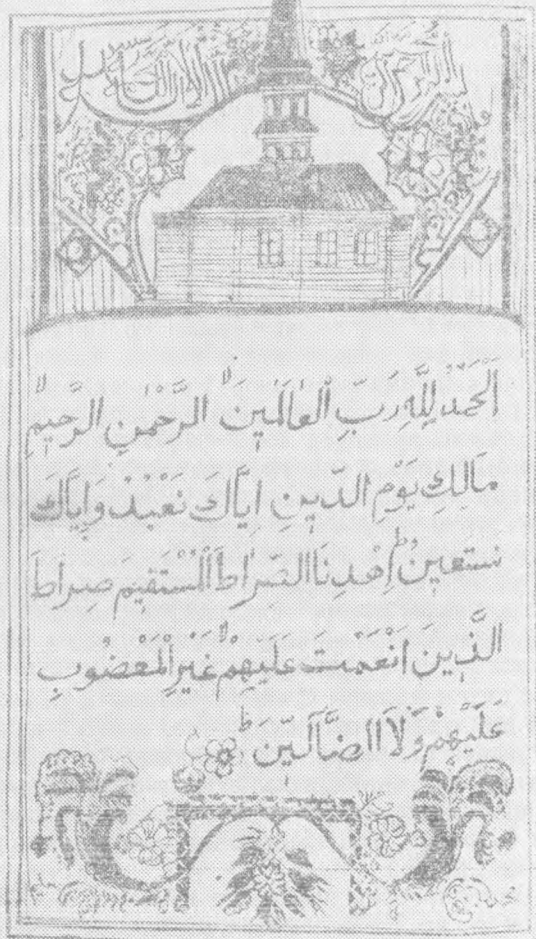 اَلْحَمْدُ لِلّٰهِ رَبِّ الْعَالَمِينَ ۙ الرَّحْمٰنِ الرَّحِيمِ ۙ
مَالِكِ يَوْمِ الدِّينِ اِيَّاكَ نَعْبُدُ وَاِيَّاكَ
نَسْتَعِينُ ۗ اِهْدِنَا الصِّرَاطَ الْمُسْتَقِيمَ صِرَاطَ
الَّذِينَ اَنْعَمْتَ عَلَيْهِمْ ۙ غَيْرِ الْمَغْضُوبِ
عَلَيْهِمْ وَلَا الضَّآلِّينَ ۗ